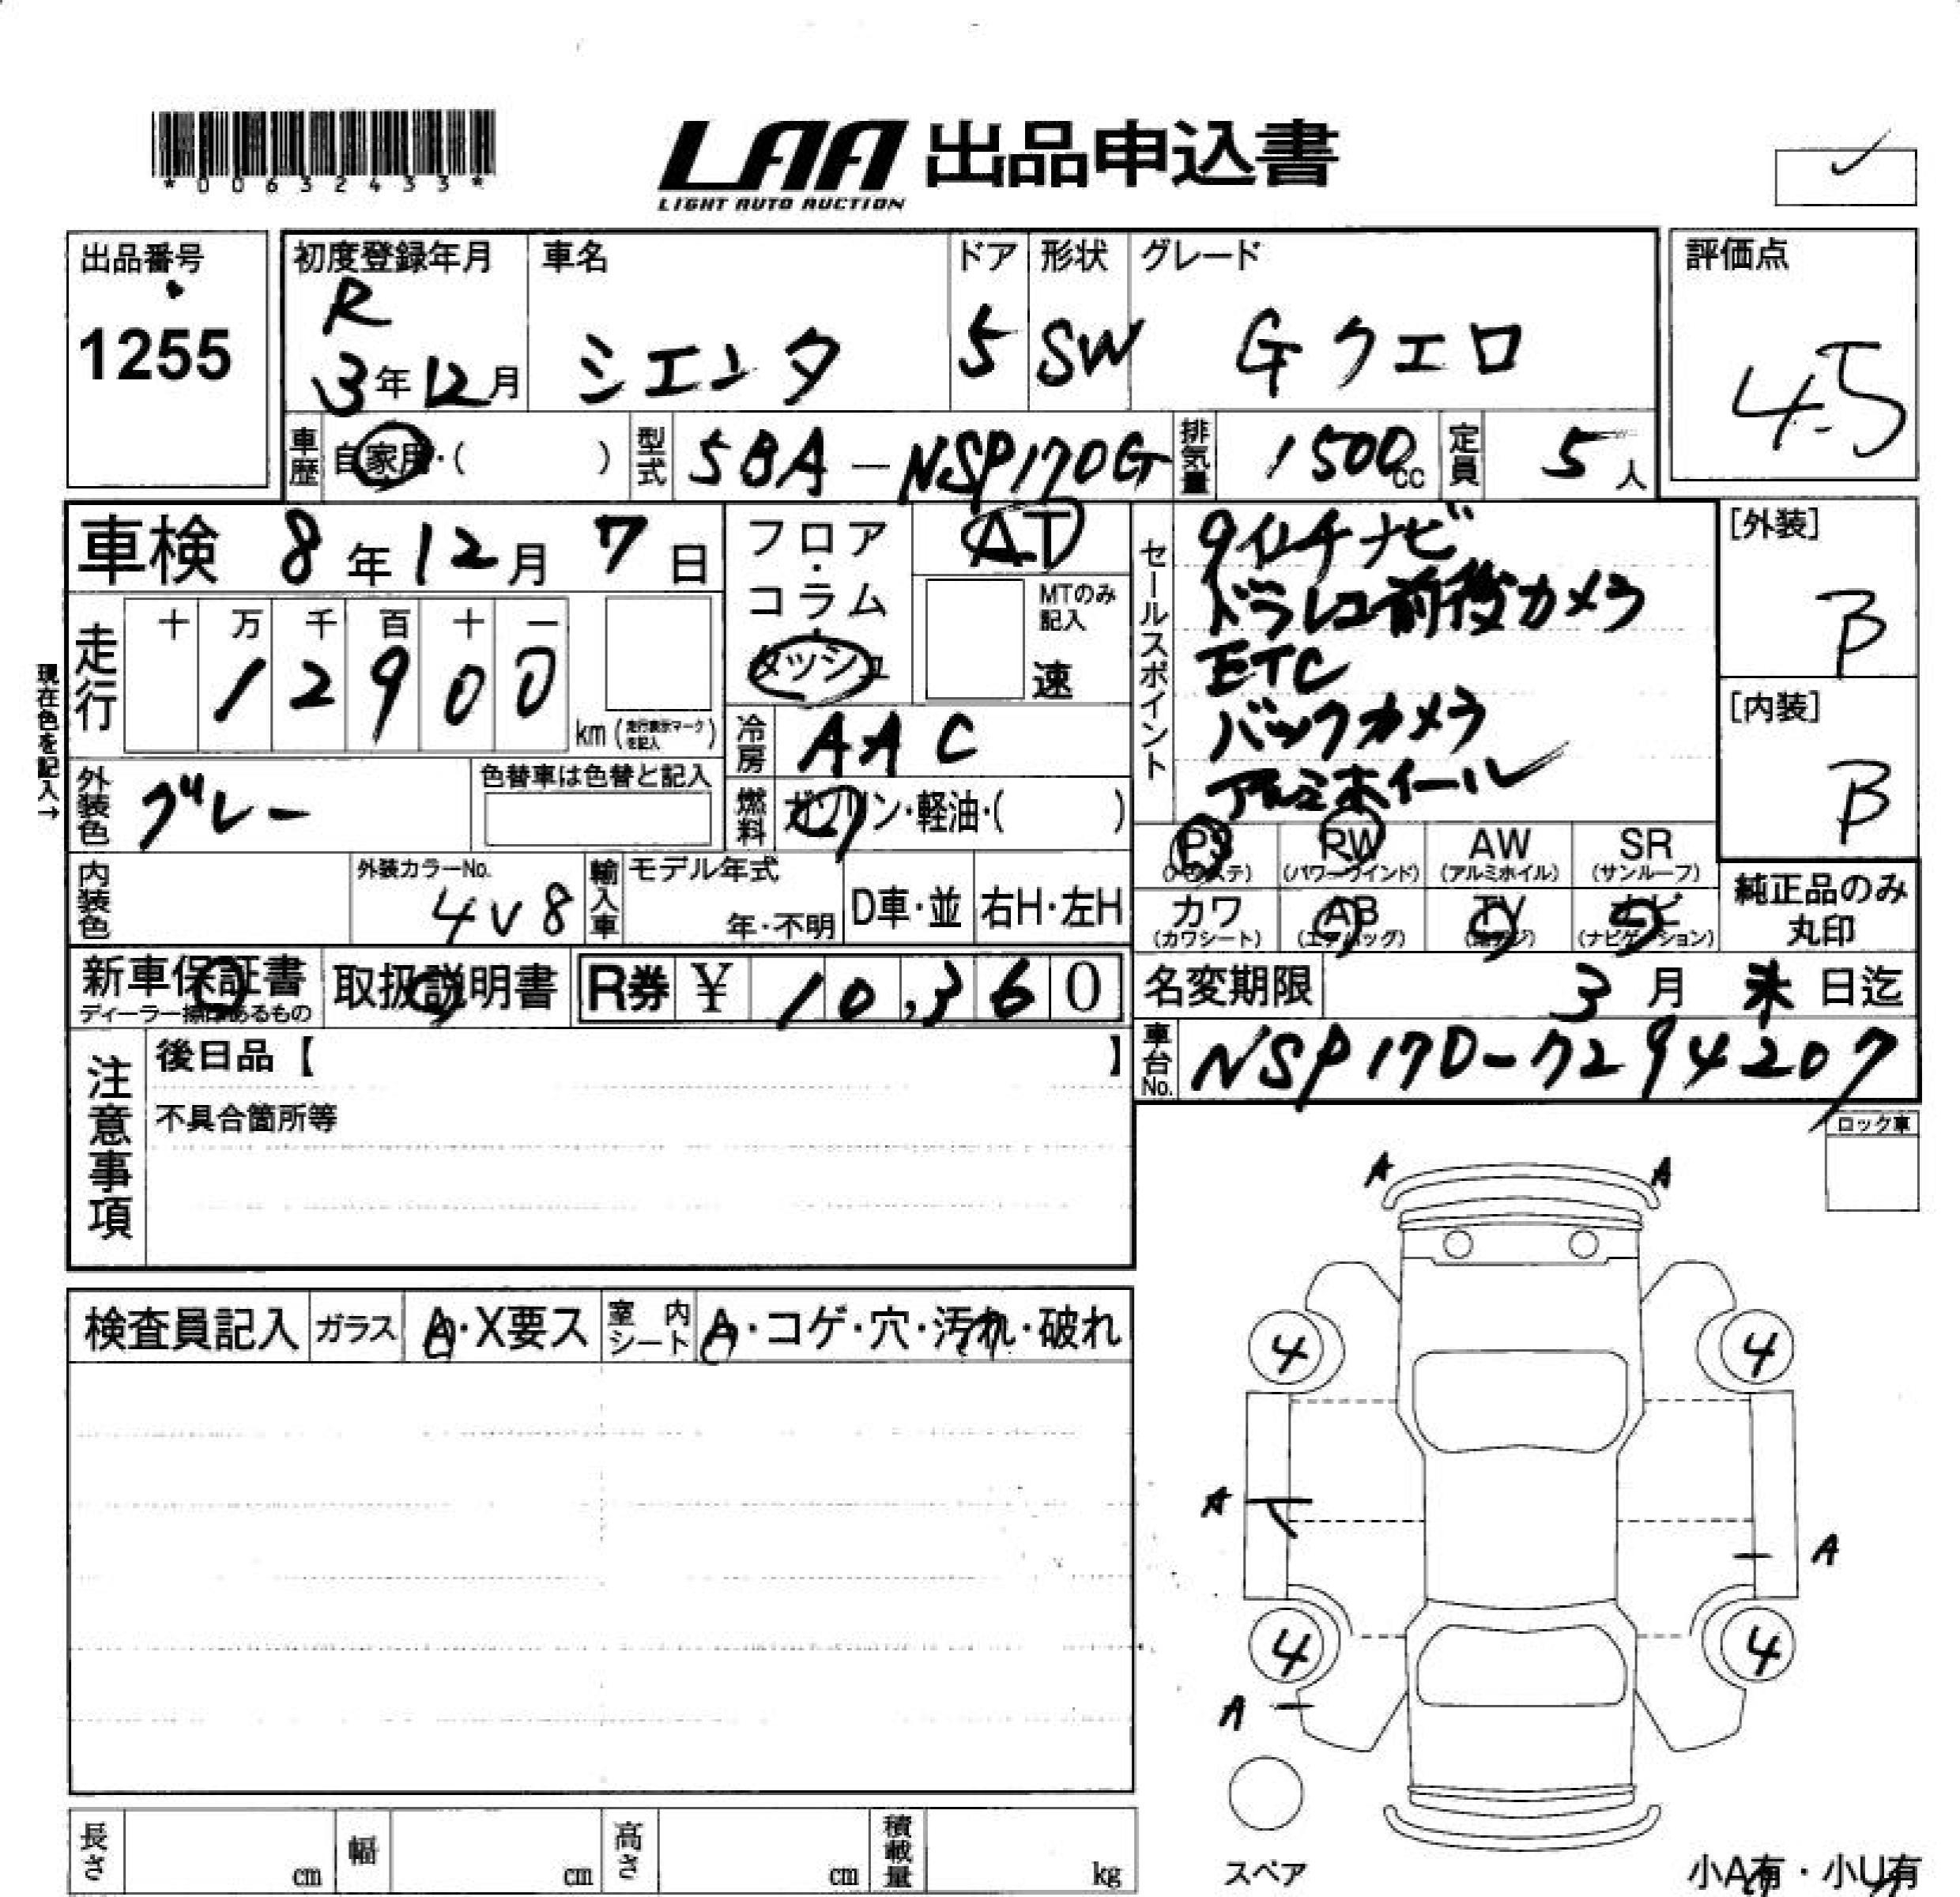 *00632433*
LAA 出品申込書
LIGHT AUTO AUCTION
出品番号
1255
初度登録年月
R
3年12月
車名
シエンタ
ドア
5
形状
SW
グレード
Gクエロ
評価点
4.5
車歴 自家用・( )
型式 5BA-NSP170G
排気量 1500cc
定員 5人
車検 8年12月7日
フロア・コラム
ダッシュ
AT
MTのみ記入
速
セールスポイント
9インチナビ
ドラレコ前後カメラ
ETC
バックカメラ
アルミホイール
[外装]
B
[内装]
B
現在色を記入→
走行
十 万 千 百 十 一
1 2 9 0 0
km(走行表示マークを記入)
冷房 AAC
外装色 グレー
色替車は色替と記入
燃料 ガソリン・軽油・( )
PS (パワステ)
PW (パワーウインド)
AW (アルミホイル)
SR (サンルーフ)
内装色
外装カラーNo.
4V8
輸入車
モデル年式
年・不明
D車・並
右H・左H
カワ (カワシート)
AB (エアバッグ)
TV
ナビ (ナビゲーション)
純正品のみ丸印
新車保証書
取扱説明書
R券 ¥ 10,360
名変期限 3月末日迄
車台No. NSP170-7294207
注意事項
後日品【 】
不具合箇所等
ロック車
A A
検査員記入
ガラス A・X要ス
室内シート A・コゲ・穴・汚れ・破れ
4 4
A
A
4 4
A
スペア
長さ cm
幅 cm
高さ cm
積載量 kg
小A有・小U有